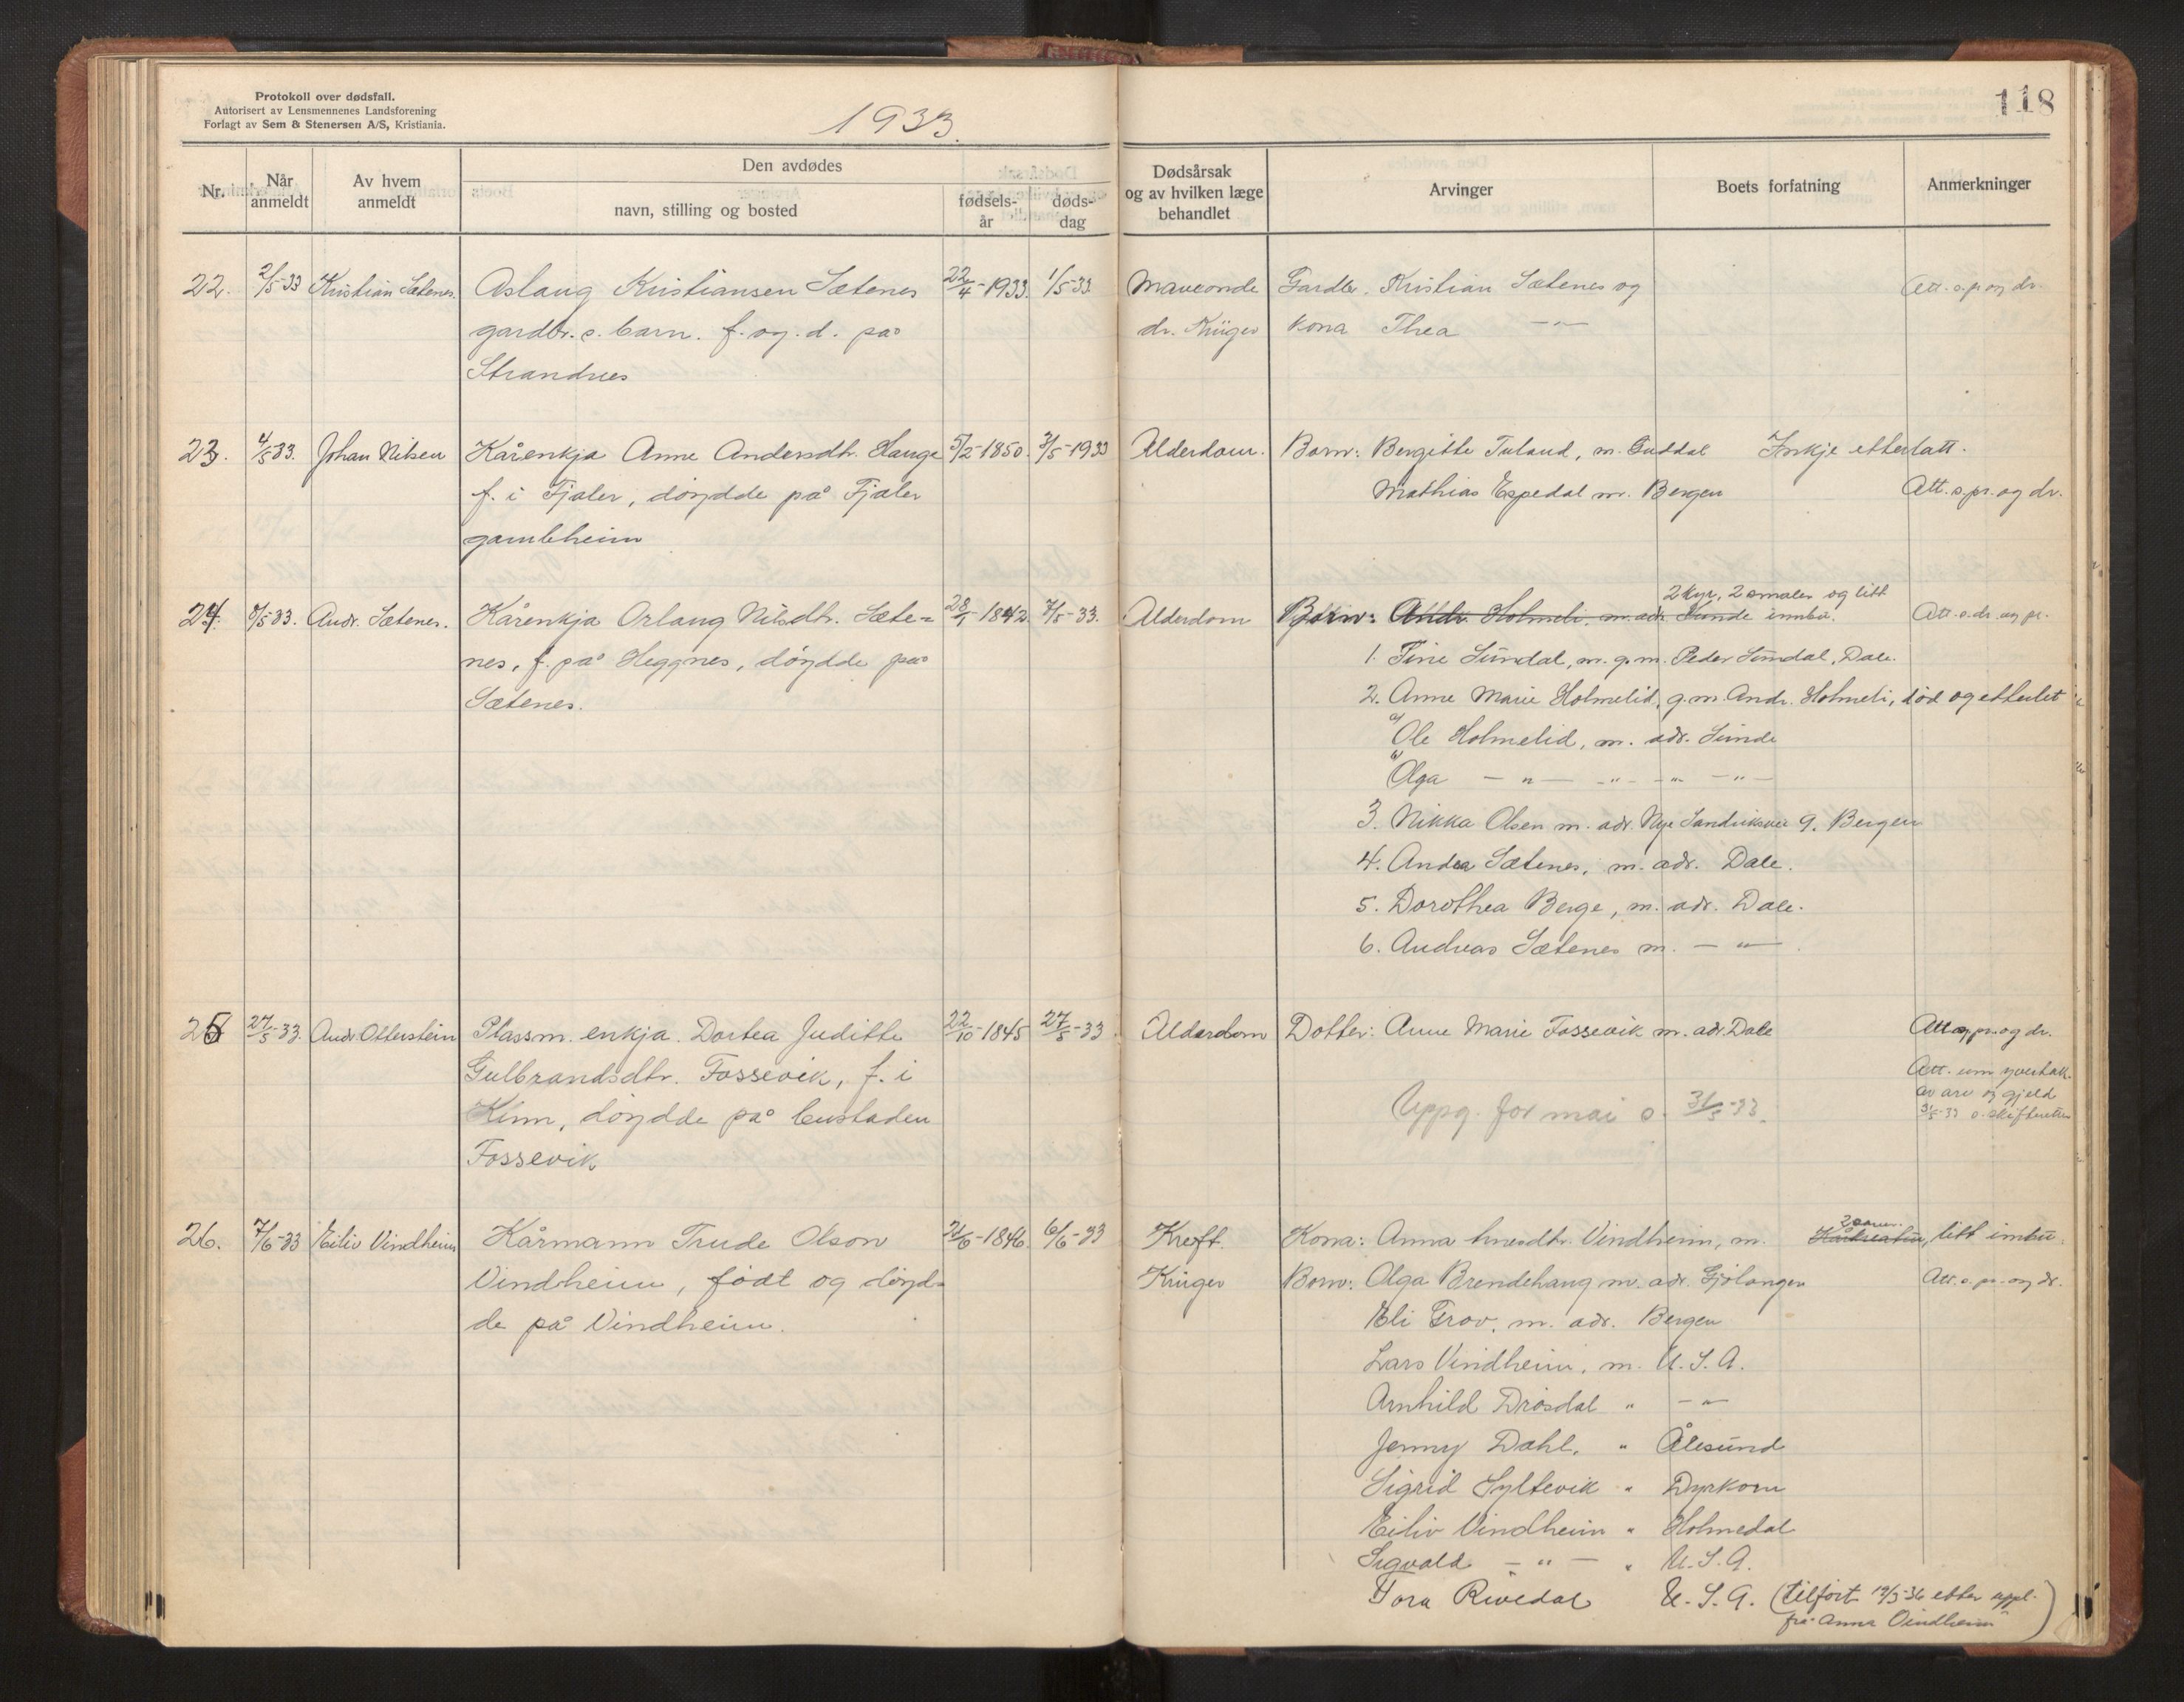 Protokoll over dødsfall.
Autorisert av Lensmennenes Landsforening
Forlagt av Sem & Stenersen A/S, Kristiania.
1933.
118
Nr.
Når anmeldt
Av hvem anmeldt
Den avdødes
navn, stilling og bosted
fødsels-år
døds-dag
Dødsårsak og av hvilken læge behandlet
Arvinger
Boets forfatning
Anmerkninger
22. 2/5-33 Kristian Sætenes. Aslaug Kristiansen Sætenes 22/4-1933. 1/5-33. Maveonde Gardbr. Kristian Sætenes og Att. s. pr og dr.
gardbr.s. barn. f. og. d. på dr. Krüger kona Thea —"—
Strandnes
23. 4/5-33. Johan Nilsen Kårenkja Anne Andersdtr. Hauge 5/2-1850. 3/5-1933 Alderdom. Born: Bergitte Tuland, m. Guddal Inkje etterlatt.
f. i Fjaler, døydde på Fjaler Mathias Espedal m. Bergen Att. s. pr. og dr.
gamleheim
2 kyr, 2 smaler og litt
24. 8/5-33. Andr. Sætenes. Kårenkja Orlaug Nilsdtr. Sæte= 28/1-1842. 7/5-33. Alderdom Born: Andr. Holmeli. m. adr. Sunde innbu. Att. s. dr. og pr.
nes, f. på Heggnes, døydde på 1. Tine Sundal, m. g. m. Peder Sundal, Dale.
Sætenes. 2. Anne Marie Holmelid, g. m. Andr. Holmeli, død og etterlet
a) Ole Holmelid, m. adr. Sunde
b) Olga — " — — " — — " — — " —
3. Nikka Olsen m. adr. Nye Sandviksvei 9. Bergen
4. Andrea Sætenes, m. adr. Dale.
5. Dorothea Berge, m. adr. Dale.
6. Andreas Sætenes m. — " — .
25 27/5-33. Andr. Otterstein Plassm. enkja. Dortea Juditte 22/10-1845 27/5-33. Alderdom Dotter: Anne Marie Fossevik m. adr. Dale Att. s. pr. og dr.
Gulbrandsdtr. Fossevik, f. i Att. um yvertak.
Kinn, døydde på bustaden Uppg. for mai s. 31/5-33. av arv og gjeld
31/5-33 s. skifteretten
Fossevik
2 sauer.
26. 7/6-33 Eiliv Vindheim Kårmann Trude Olson 21/6-1846. 6/6-33 Kreft. Kona: Anna Vindheim, m. litt innbu.
Vindheim, født og døyd- Krüger Born: Olga Brendehaug m. adr. Gjølanger Att. s. pr. og dr.
de på Vindheim. Eli Grov, m. adr. Bergen
Lars Vindheim, m. U.S.A.
Arnhild Drøsdal " — " —
Jenny Dahl. " Ålesund
Sigrid Syltevik " Dyrkorn
Eiliv Vindheim " Holmedal
Sigvald — " — " U.S.A.
Tora Rivedal U.S.A. (tilført 19/3-36 etter uppl.
frå Anna Vindheim)